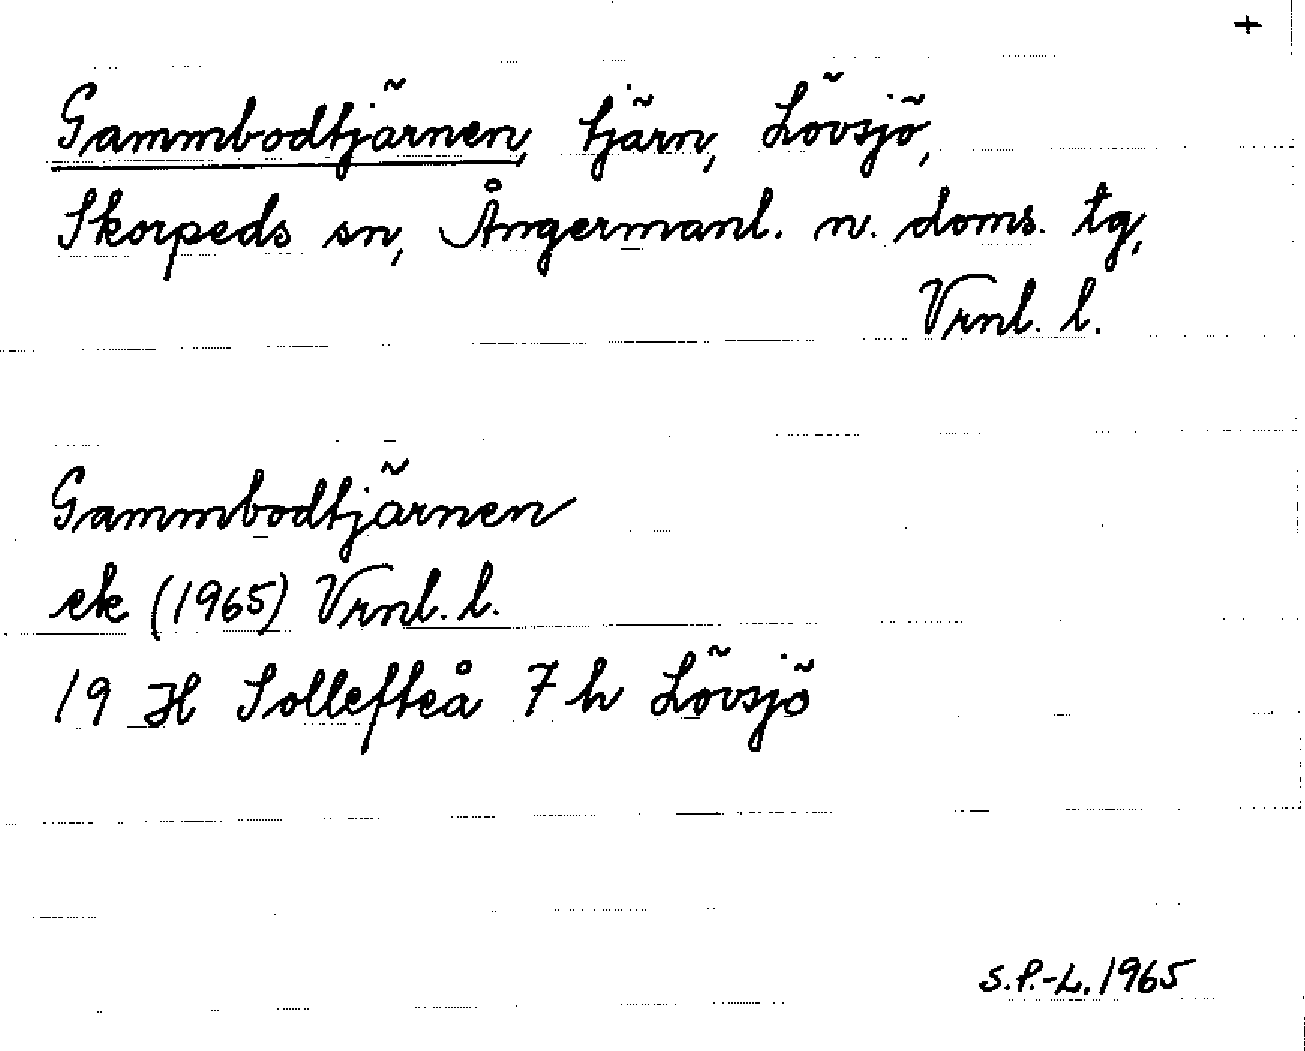 +
Gammbodtjärnen, tjärn, Lövsjö,
Skorpeds sn, Ångermanl. n. doms. tg,
Vrnl. l.
Gammbodtjärnen
ek (1965) Vrnl. l.
19 H Sollefteå 7 h Lövsjö
S.P.-L. 1965